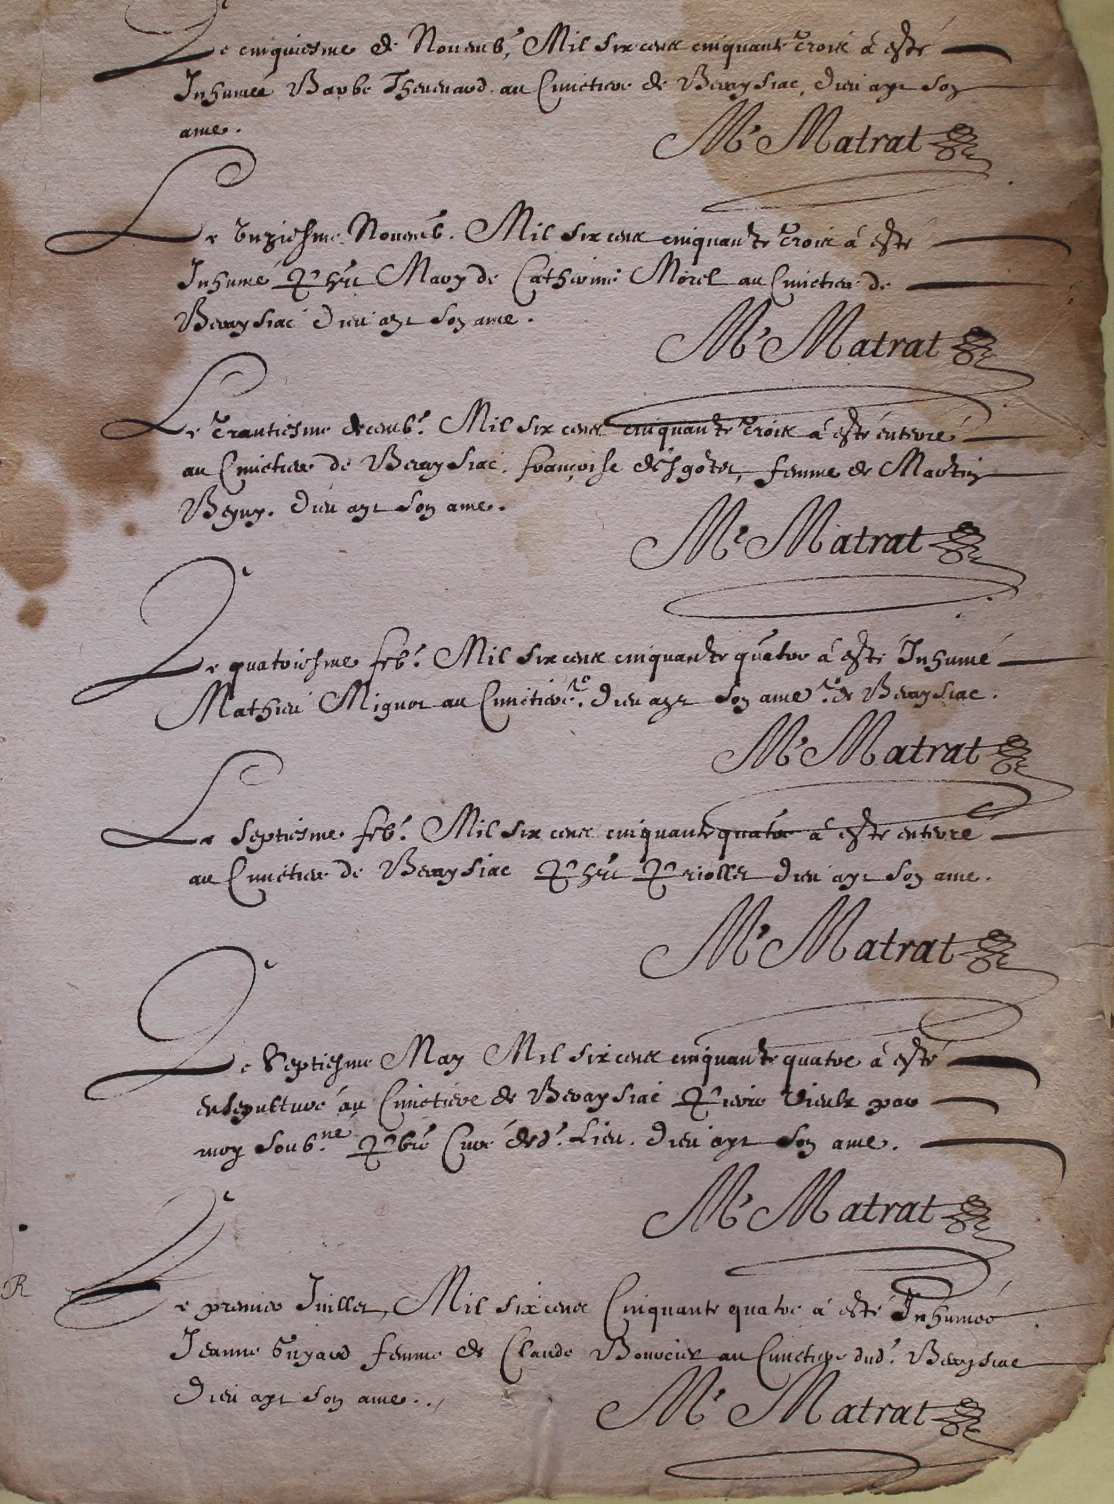 Le cinquiesme de Novemb.e Mil six cens cinquante trois à esté
Inhumée Barbe Thevenard au Cimetiere de Beraysiac, dieu ayt son
ame.
Mre Matrat
Le unziesme Novemb. Mil six cens cinquante trois à esté
Inhumé Mary de Catherine Morel au Cimetiere de
Beraysiac dieu ayt son ame.
Mre Matrat
Le trantiesme decemb.e Mil six cens cinquante trois à esté enterré
au Cimetiere de Beraysiac. françoise femme de Martin
dieu ayt son ame.
Mre Matrat
Le quatoiesme feb.e Mil six cens cinquante quatre à esté Inhumé
Mathieu Mignot au Cimetiere. dieu ayt son ame de Beraysiac.
Mre Matrat
Le septiesme feb.e Mil six cens cinquante quatre à esté enterré
au Cimetiere de Beraysiac dieu ayt son ame.
Mre Matrat
Le Septiesme May Mil six cens cinquante quatre à esté
ensepulturé au Cimetiere de Beraysiac Pierre Vieulx par
moy soub.né Pbre Curé dud. Lieu. Dieu ayt son ame.
Mre Matrat
R
Le premier Juillet, Mil six cens Cinquante quatre à esté Inhumée
Jeanne Guyard femme de Claude au Cimetiere dud. Beraysiac
Dieu ayt son ame.
Mre Matrat